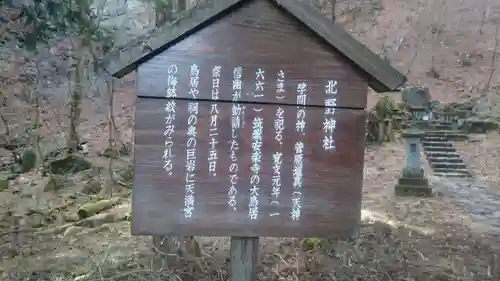 北野神社
学問の神、菅原道真（天神
さま）を祀る。寛文元年（一
六六一）筑紫安楽寺の大鳥居
信幽が勧請したものである。
祭日は八月二十五日。
鳥居や祠の奥の巨岩に天満宮
の梅鉢紋がみられる。